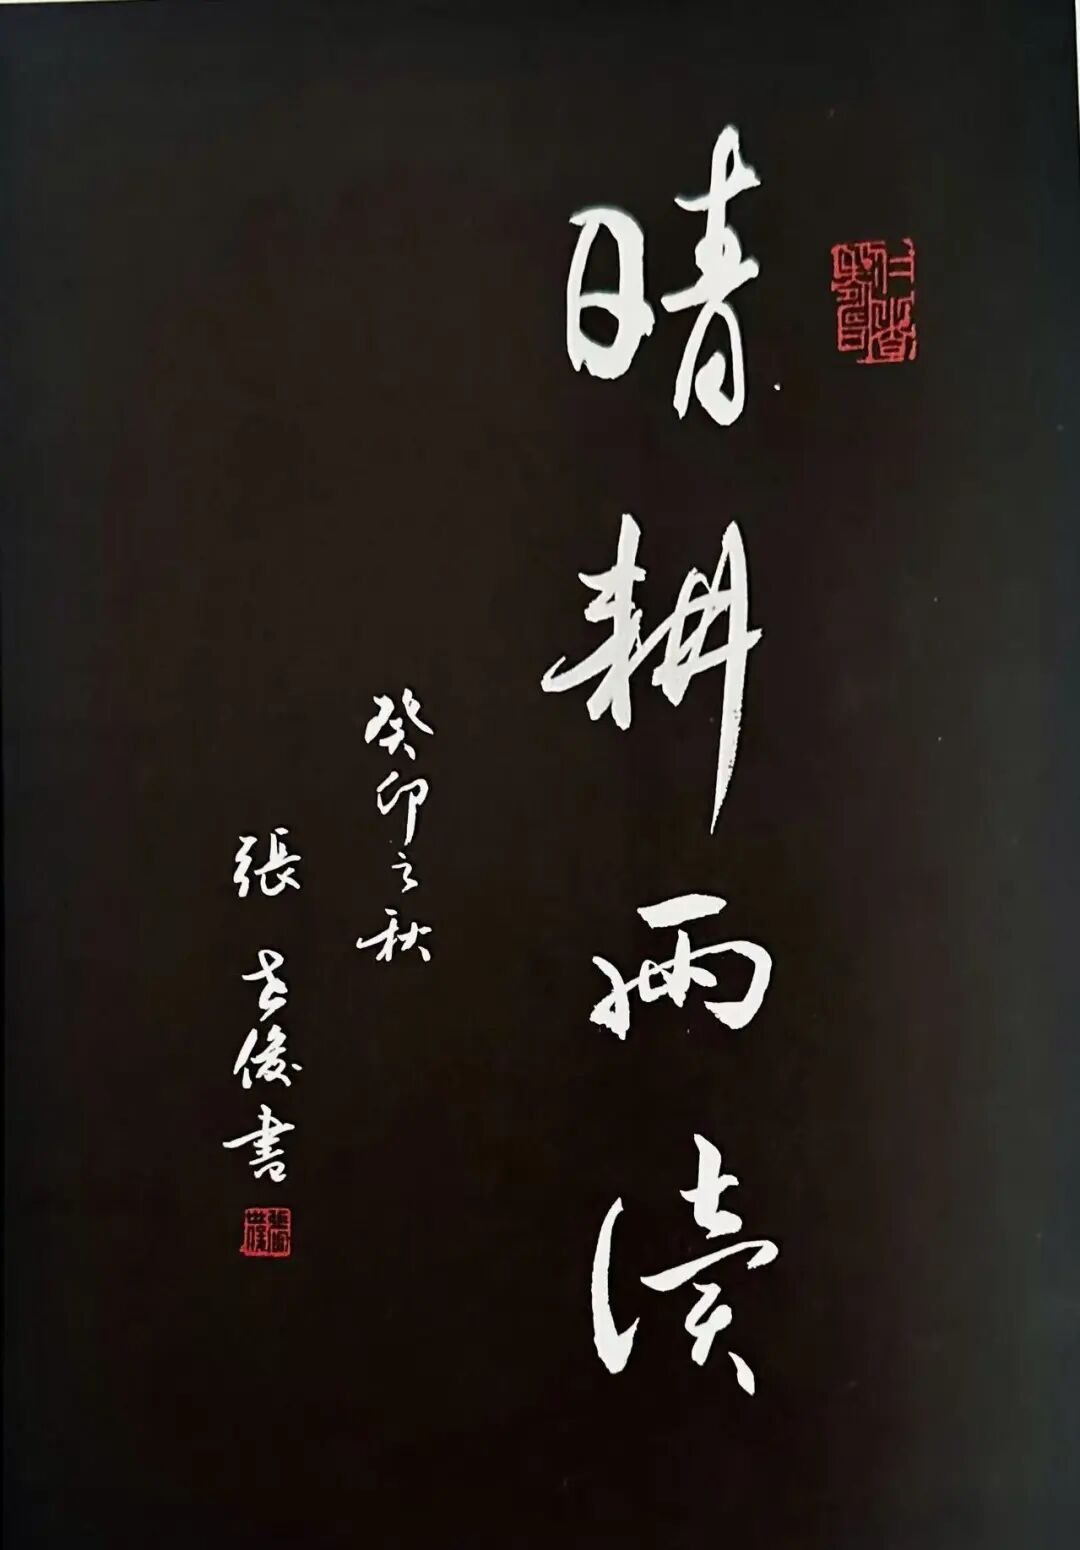 晴耕雨读
癸卯之秋
張世俊書